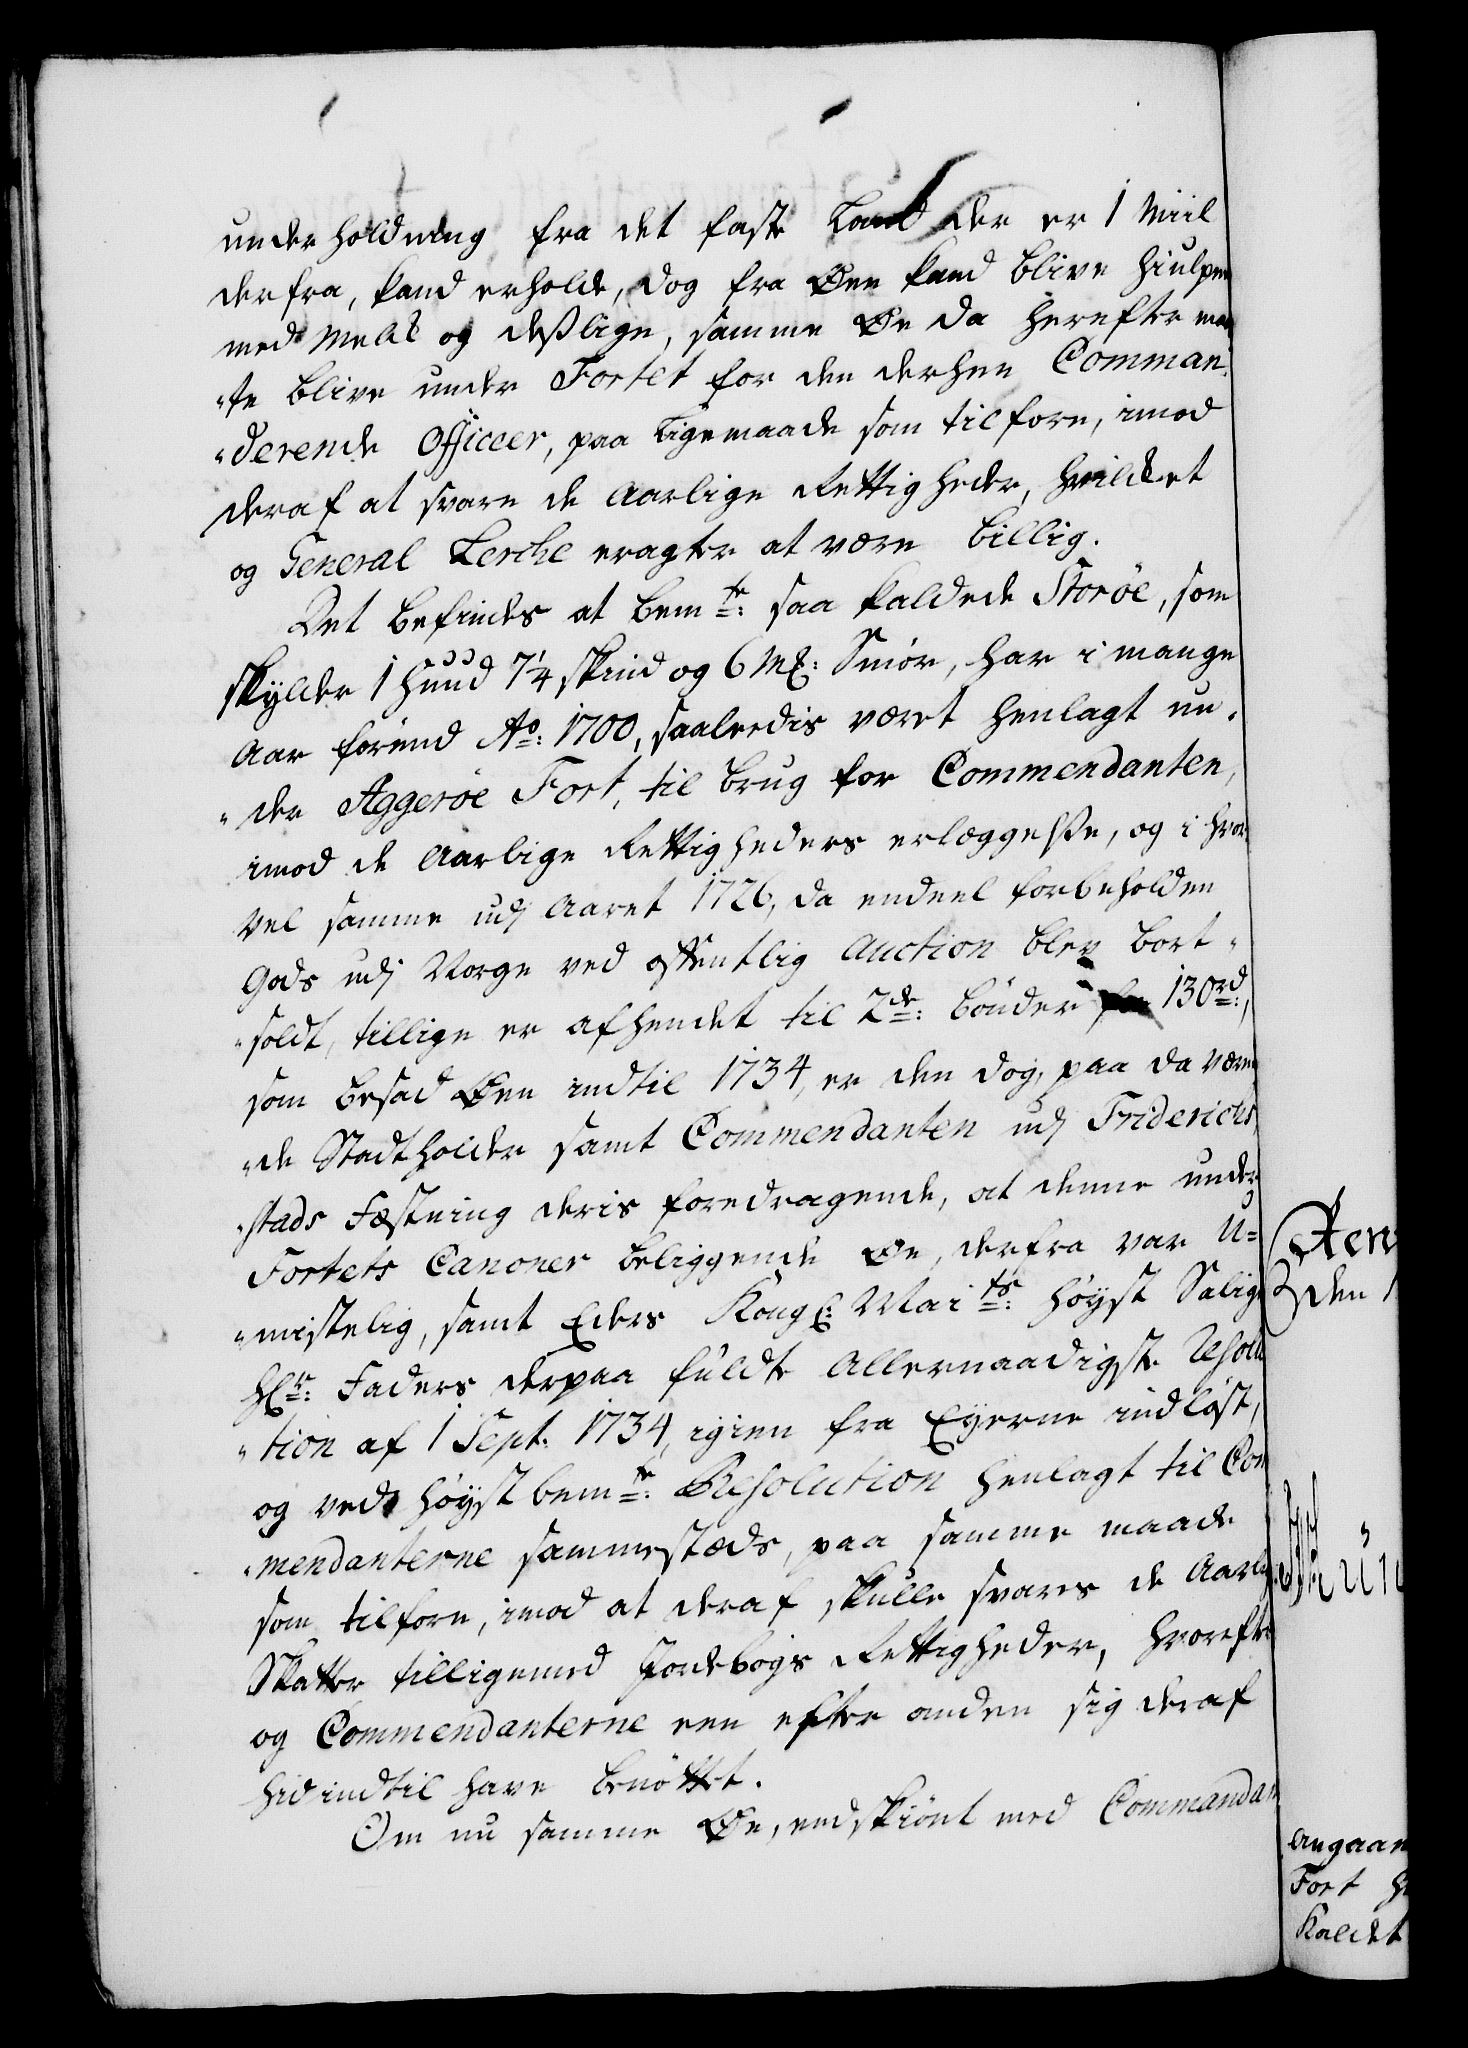 underholdning fra det faste Land der er 1 Miil
derfra, kand erholde, dog fra Øen kand blive hiulpen
med Melk og deßlige, samme Øe da herefter maa-
"te blive under Fortet for den derhen Comman-
"derende Officeer, paa Ligemaade som tilforn, imod
deraf at svare de Aarlige Rettigheder, hvilcket
og General Lerche eragter at være billig.
Det befindes at bemte: saa kaldede Storöe, som
skylder 1 huud 7 1/4 skind og 6 Mk: Smör, har i mange
Aar forend Ao: 1700, saaledis været henlagt un-
"der Aggeröe Fort, til brug for Commendanten,
imod de Aarlige Rettigheders erlæggelße, og i hvor
vel samme udj Aaret 1726, da endeel forbeholden
Gods udj Norge ved offentlig Auction blev bort-
"soldt, tillige er afhendet til 2de: bönder for 130 rd:,
som besad Øen indtil 1734, er den dog, paa da væren
"de Stadtholder samt Commendanten udj Friderichs
"stads Fæstning deris foredragende, at denne under
Fortets Canoner beliggende Øe, derfra var U-
"mistelig, samt Eders Kongl: Maits: Höyst Salig
Hr: Faders derpaa fuldte Allernaadigste Resolu
"tion af 1 Sept: 1734, igien fra Eyerne indlöst,
og ved höystbemte: Resolution henlagt til Com
"mendanterne sammestæds, paa samme maade
som tilforn, imod at deraf skulle svares de Aarlige
Skatter tilligemed Jordebogs Rettigheder, hvorefter
og Commendanterne een efter anden sig deraf
hidindtil have benöttet.
Om nu samme Øe, endskiönt med Commandan
den
angaaen
Fort
Kaldet